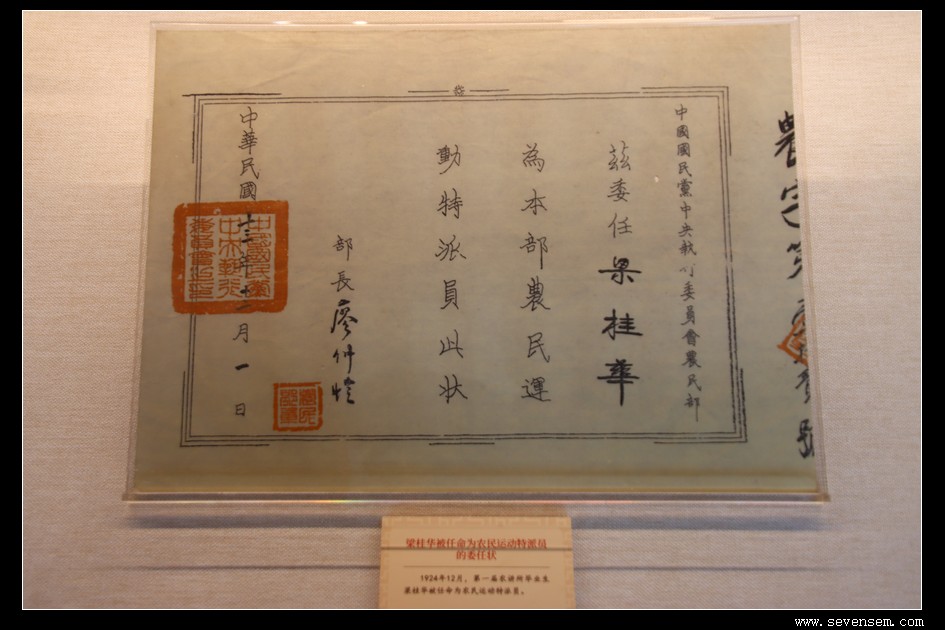 中國國民黨中央執行委員會農民部
茲委任梁桂華
為本部農民運
動特派員此狀
部長廖仲愷
中華民國十三年十二月一日
中國國民黨
中央執行
委員會之印
農字第
號
梁桂华被任命为农民运动特派员
的委任状
1924年12月，第一届农讲所毕业生
梁桂华被任命为农民运动特派员。
www.sevensem.com